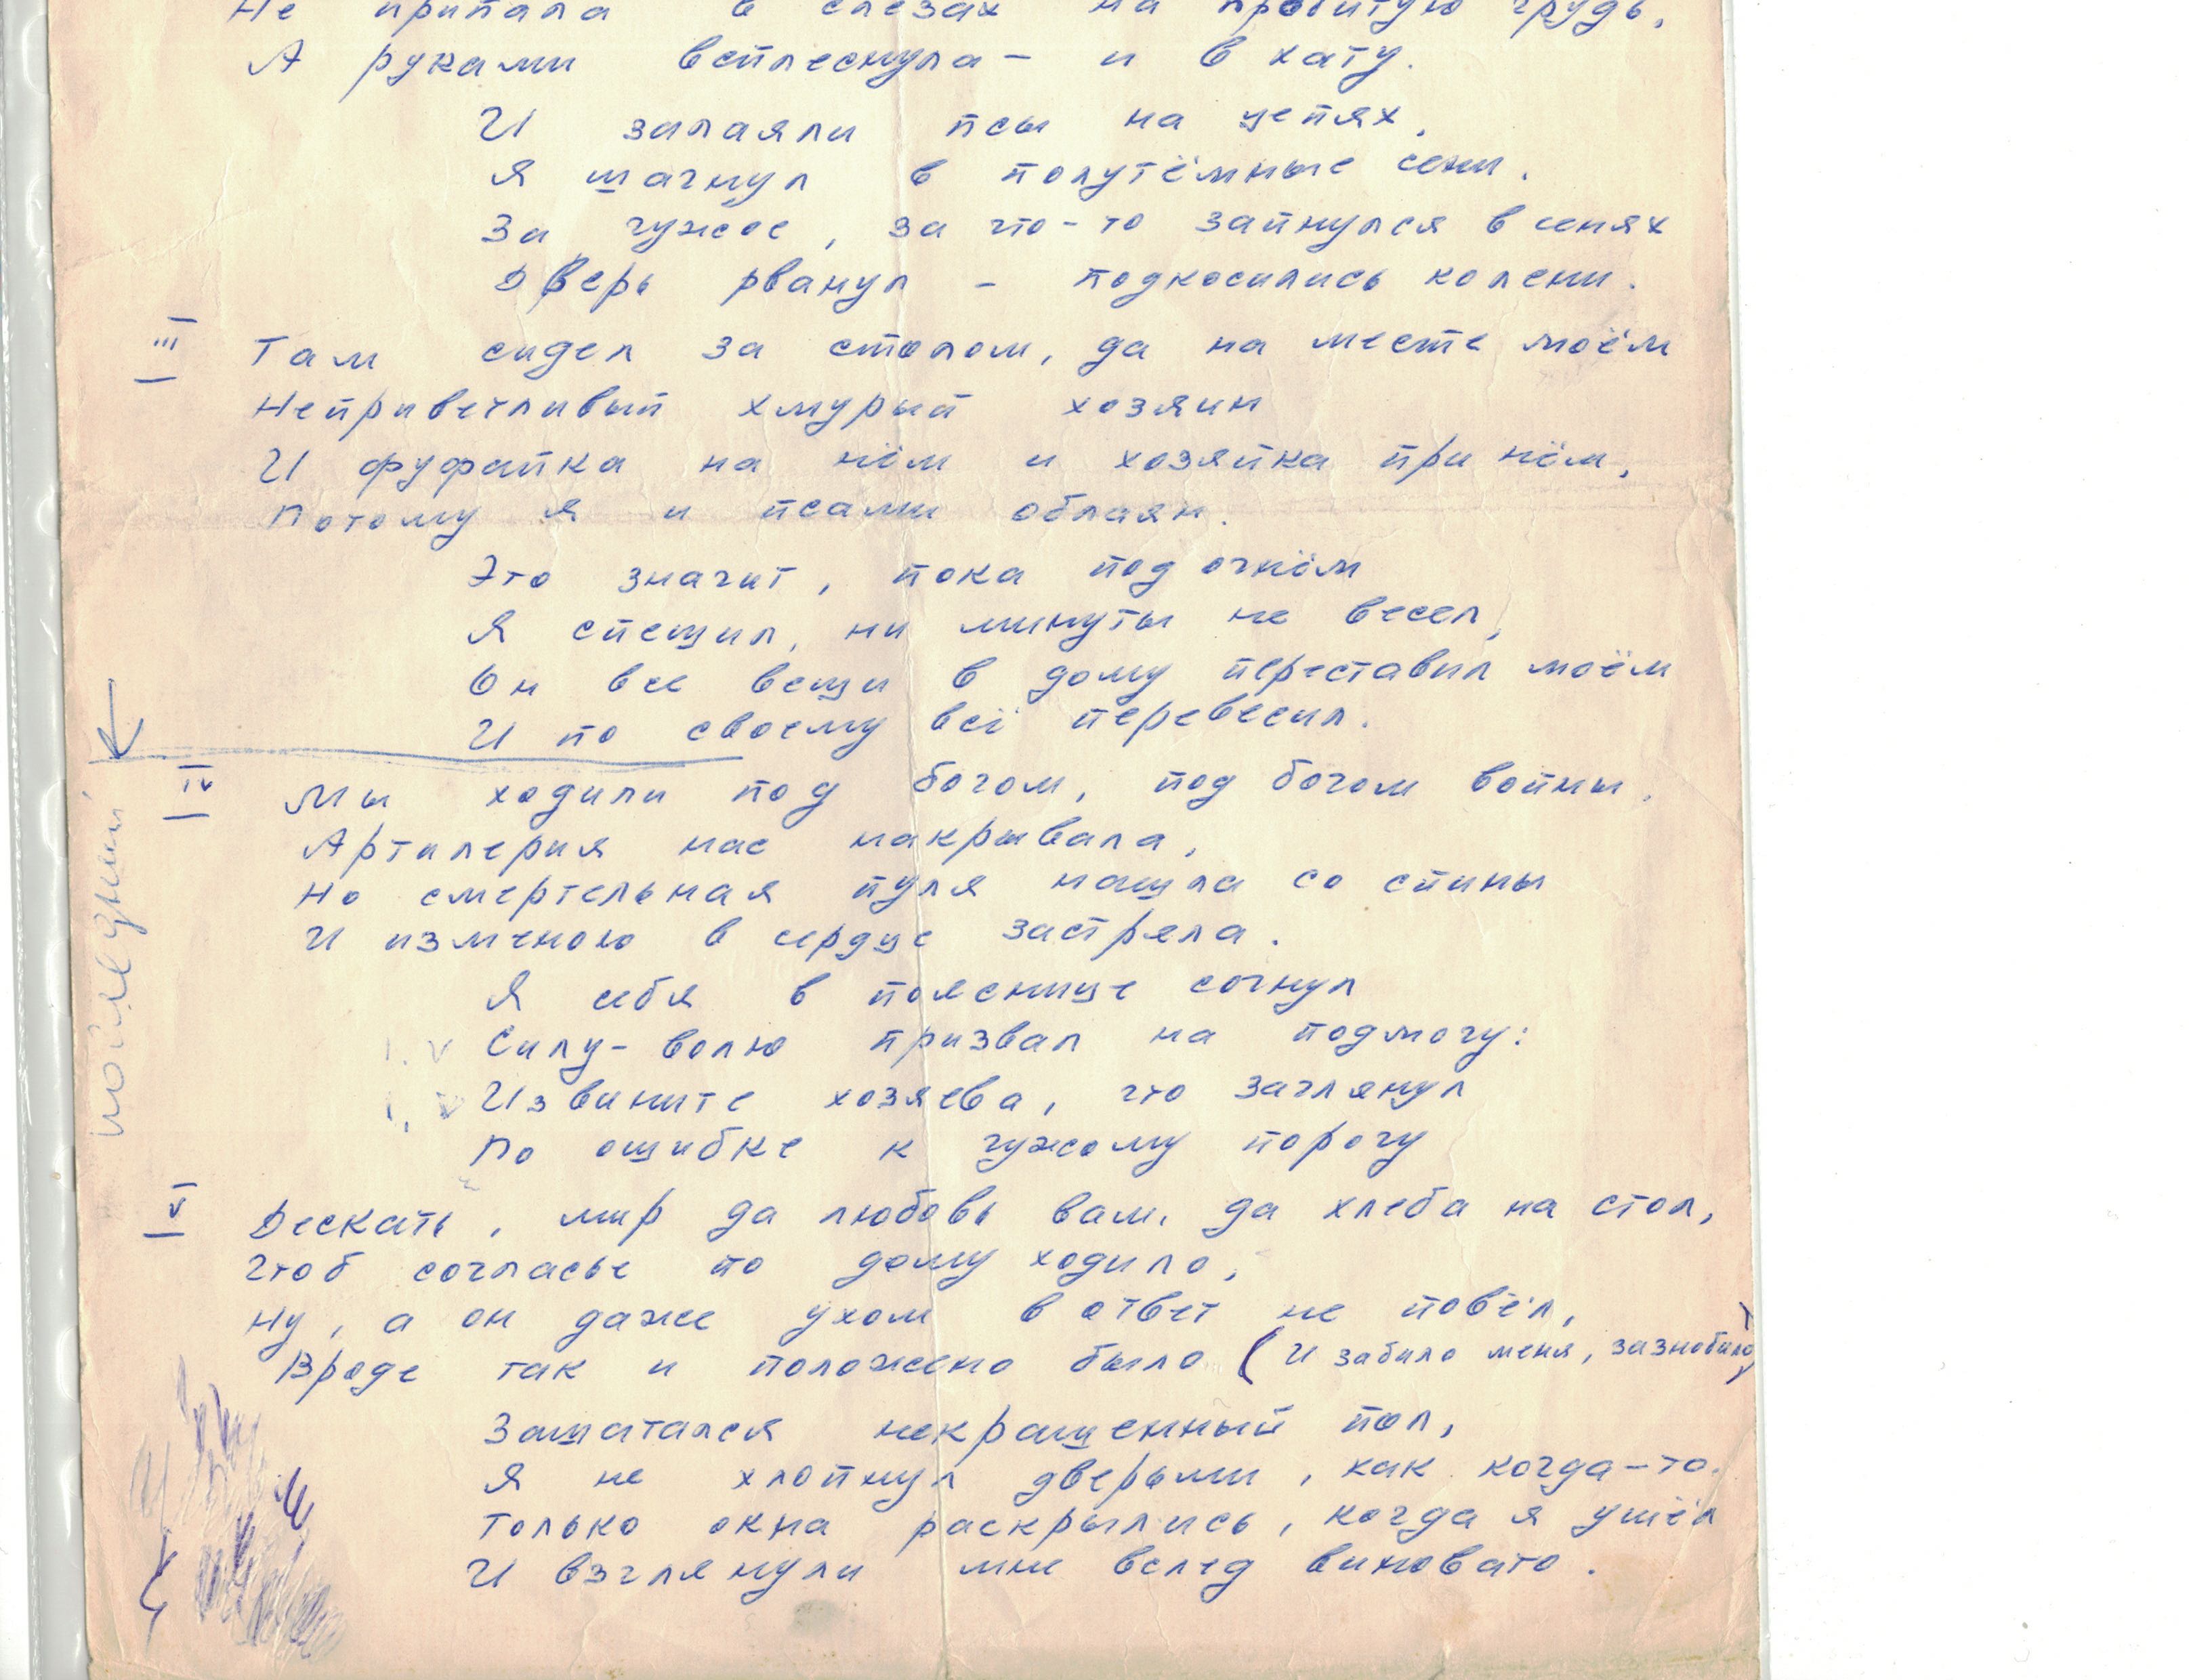 Не припала в слезах на пробитую грудь,
А руками всплеснула – и в хату.
И залаяли псы на цепях,
Я шагнул в полутёмные сени.
За чужое, за что-то запнулся в сенях
Дверь рванул – подкосились колени.
III
Там сидел за столом, да на месте моём
Неприветливый хмурый хозяин
И фуфайка на нём и хозяйка при нём,
Потому я и псами облаян.
Это значит, пока под огнём
Я спешил, ни минуты не весел,
Он все вещи в дому переставил моём
И по своему всё перевесил.
IV
Мы ходили под богом, под богом войны,
Артилерия нас накрывала,
Но смертельная пуля нашла со спины
И изменою в сердце застряла.
Я себя в пояснице согнул
Силу-волю призвал на подмогу:
Извините хозяева, что заглянул
По ошибке к чужому порогу
V
Дескать, мир да любовь вам, да хлеба на стол,
Чтоб согласье по дому ходило,
Ну, а он даже ухом в ответ не повёл,
Вроде так и положено было (И забило меня, зазнобило)
Зашатался некрашенный пол,
Я не хлопнул дверьми, как когда-то.
Только окна раскрылись, когда я ушёл
И взглянули мне вслед виновато.